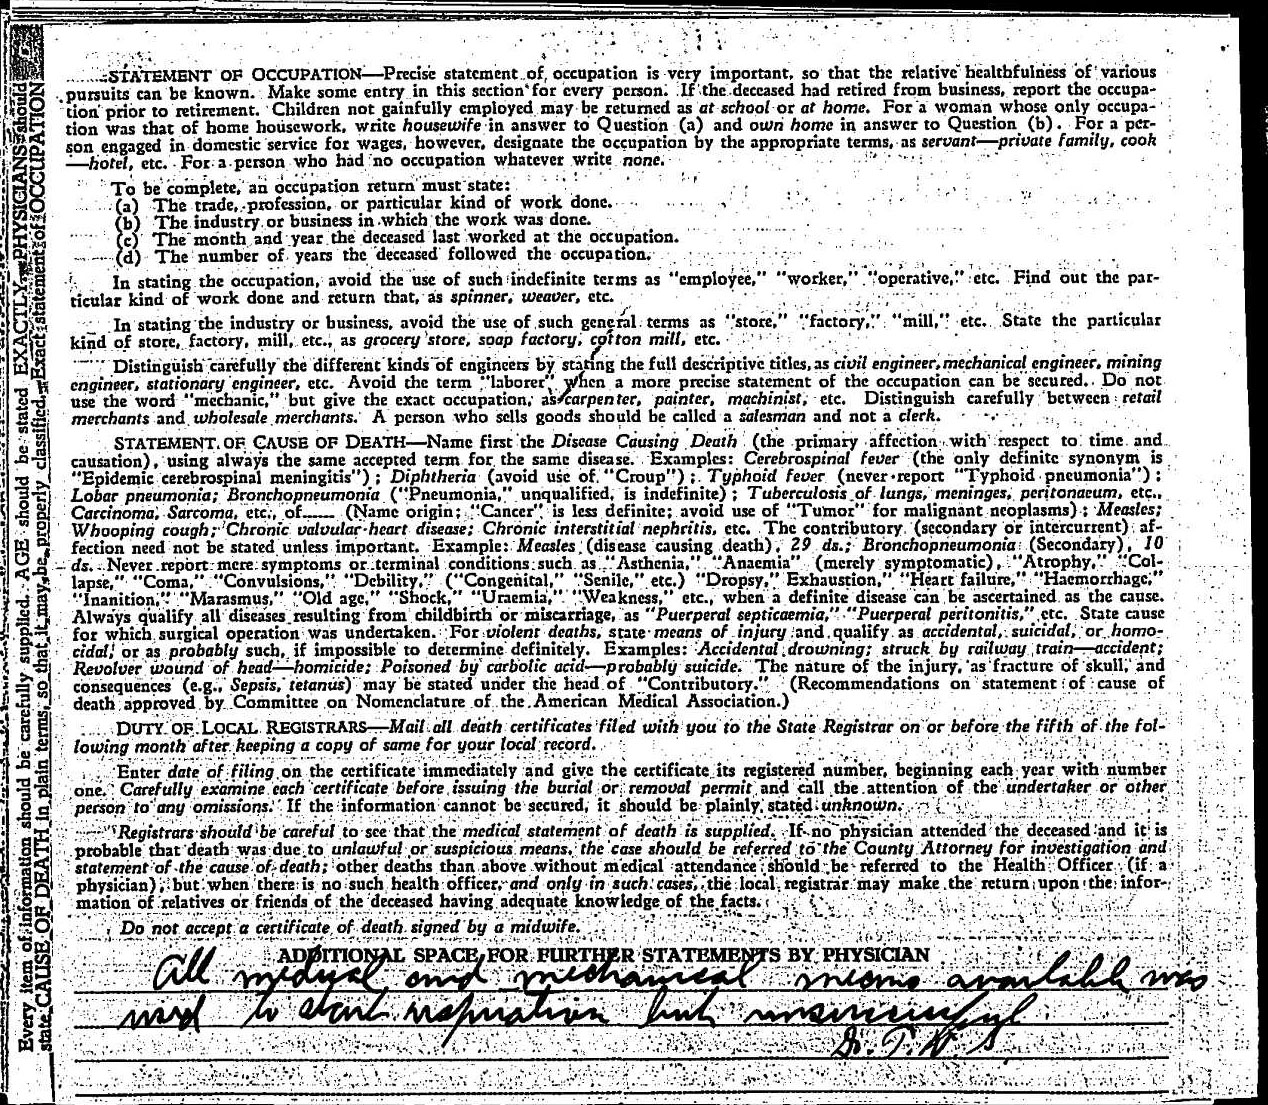 STATEMENT OF OCCUPATION—Precise statement of occupation is very important, so that the relative healthfulness of various
pursuits can be known. Make some entry in this section for every person. If the deceased had retired from business, report the occupa-
tion prior to retirement. Children not gainfully employed may be returned as at school or at home. For a woman whose only occupa-
tion was that of home housework, write housewife in answer to Question (a) and own home in answer to Question (b). For a per-
son engaged in domestic service for wages, however, designate the occupation by the appropriate terms, as servant—private family, cook
—hotel, etc. For a person who had no occupation whatever write none.
To be complete, an occupation return must state:
(a) The trade, profession, or particular kind of work done.
(b) The industry or business in which the work was done.
(c) The month and year the deceased last worked at the occupation.
(d) The number of years the deceased followed the occupation.
In stating the occupation, avoid the use of such indefinite terms as "employee," "worker," "operative," etc. Find out the par-
ticular kind of work done and return that, as spinner, weaver, etc.
In stating the industry or business, avoid the use of such general terms as "store," "factory," "mill," etc. State the particular
kind of store, factory, mill, etc., as grocery store, soap factory, cotton mill, etc.
Distinguish carefully the different kinds of engineers by stating the full descriptive titles, as civil engineer, mechanical engineer, mining
engineer, stationary engineer, etc. Avoid the term "laborer" when a more precise statement of the occupation can be secured. Do not
use the word "mechanic," but give the exact occupation, as carpenter, painter, machinist, etc. Distinguish carefully between retail
merchants and wholesale merchants. A person who sells goods should be called a salesman and not a clerk.
STATEMENT OF CAUSE OF DEATH—Name first the Disease Causing Death (the primary affection with respect to time and
causation), using always the same accepted term for the same disease. Examples: Cerebrospinal fever (the only definite synonym is
"Epidemic cerebrospinal meningitis"); Diphtheria (avoid use of "Croup"); Typhoid fever (never report "Typhoid pneumonia");
Lobar pneumonia; Bronchopneumonia ("Pneumonia," unqualified, is indefinite); Tuberculosis of lungs, meninges, peritonaeum, etc.,
Carcinoma, Sarcoma, etc., of...... (Name origin; "Cancer" is less definite; avoid use of "Tumor" for malignant neoplasms); Measles;
Whooping cough; Chronic valvular heart disease; Chronic interstitial nephritis, etc. The contributory (secondary or intercurrent) af-
fection need not be stated unless important. Example: Measles (disease causing death), 29 ds.; Bronchopneumonia (Secondary), 10
ds. Never report mere symptoms or terminal conditions such as "Asthenia," "Anaemia" (merely symptomatic), "Atrophy," "Col-
lapse," "Coma," "Convulsions," "Debility," ("Congenital," "Senile," etc.) "Dropsy," Exhaustion," "Heart failure," "Haemorrhage,"
"Inanition," "Marasmus," "Old age," "Shock," "Uraemia," "Weakness," etc., when a definite disease can be ascertained as the cause.
Always qualify all diseases resulting from childbirth or miscarriage, as "Puerperal septicaemia," "Puerperal peritonitis," etc. State cause
for which surgical operation was undertaken. For violent deaths, state means of injury and qualify as accidental, suicidal, or homo-
cidal, or as probably such, if impossible to determine definitely. Examples: Accidental drowning; struck by railway train—accident;
Revolver wound of head—homicide; Poisoned by carbolic acid—probably suicide. The nature of the injury, as fracture of skull, and
consequences (e.g., Sepsis, tetanus) may be stated under the head of "Contributory." (Recommendations on statement of cause of
death approved by Committee on Nomenclature of the American Medical Association.)
DUTY OF LOCAL REGISTRARS—Mail all death certificates filed with you to the State Registrar on or before the fifth of the fol-
lowing month after keeping a copy of same for your local record.
Enter date of filing on the certificate immediately and give the certificate its registered number, beginning each year with number
one. Carefully examine each certificate before issuing the burial or removal permit and call the attention of the undertaker or other
person to any omissions. If the information cannot be secured, it should be plainly stated unknown.
Registrars should be careful to see that the medical statement of death is supplied. If no physician attended the deceased and it is
probable that death was due to unlawful or suspicious means, the case should be referred to the County Attorney for investigation and
statement of the cause of death; other deaths than above without medical attendance should be referred to the Health Officer (if a
physician), but when there is no such health officer, and only in such cases, the local registrar may make the return upon the infor-
mation of relatives or friends of the deceased having adequate knowledge of the facts.
Do not accept a certificate of death signed by a midwife.
ADDITIONAL SPACE FOR FURTHER STATEMENTS BY PHYSICIAN
All medical and mechanical means available was
used to start respiration but unsuccessful
Every item of information should be carefully supplied. AGE should be stated EXACTLY. PHYSICIANS should
state CAUSE OF DEATH in plain terms, so that it may be properly classified. Exact statement of OCCUPATION